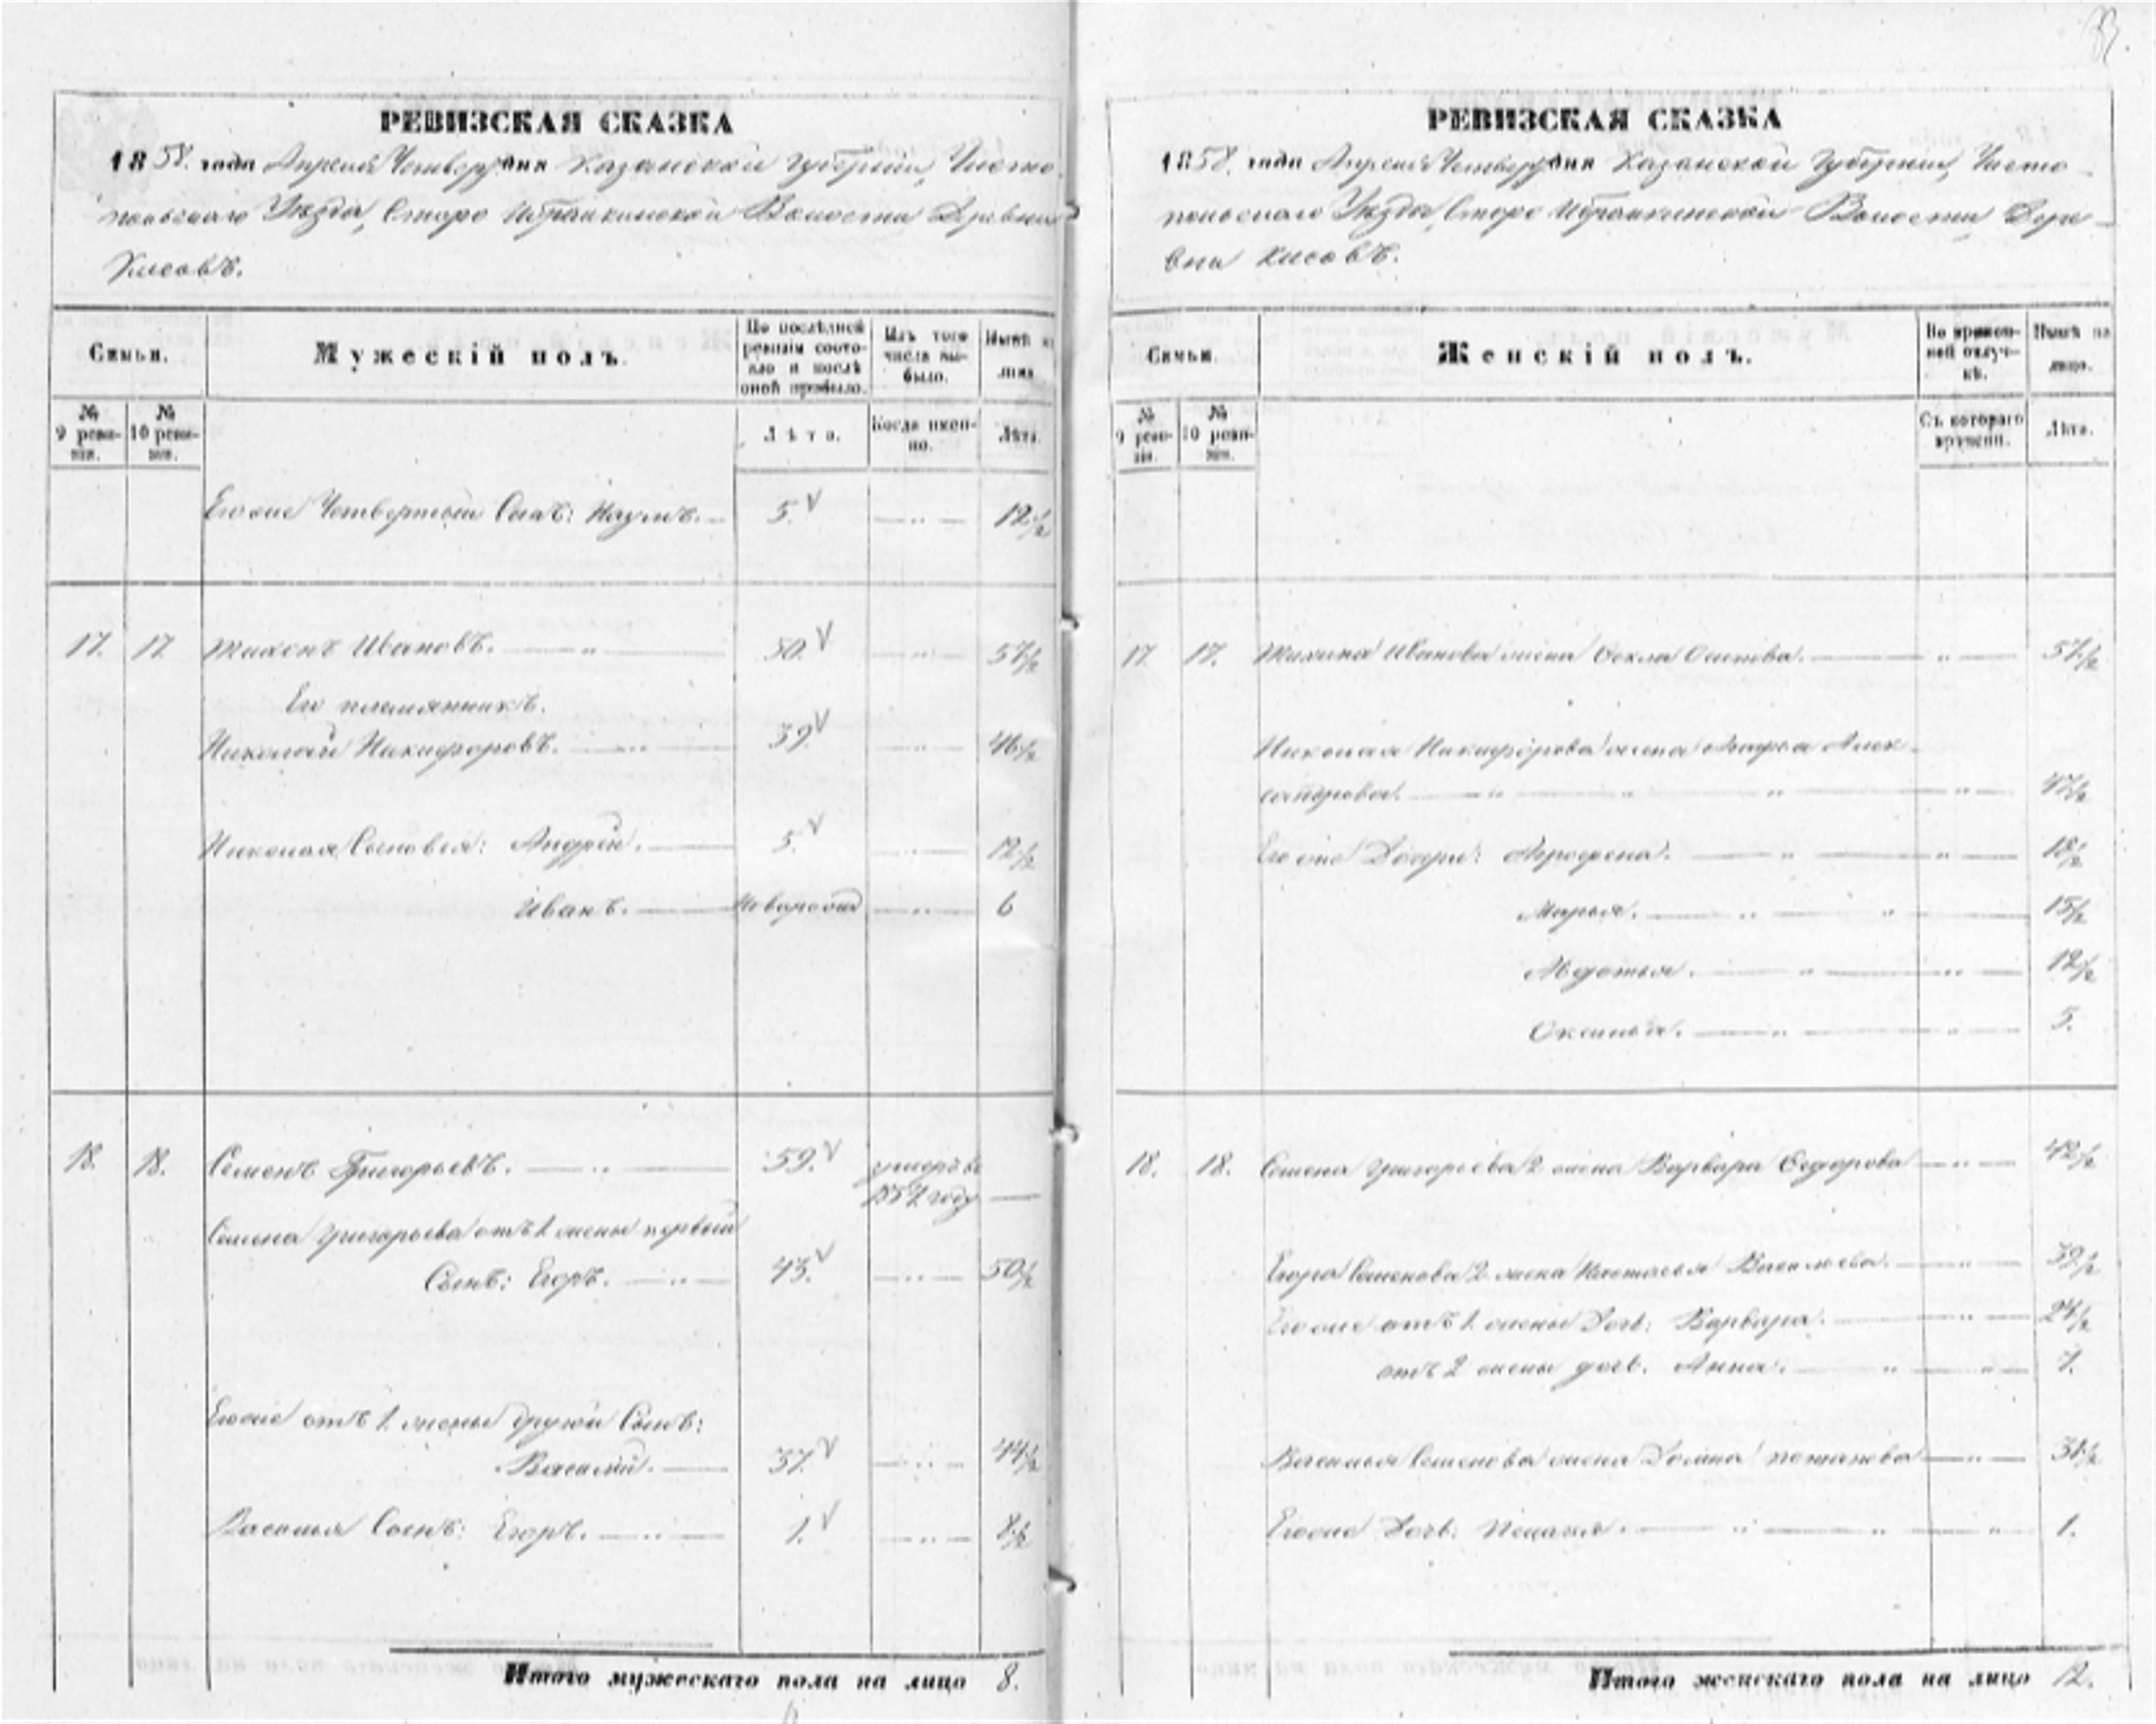 РЕВИЗСКАЯ СКАЗКА
1858. года Апреля Четверт дня Казанской Губернии, Чисто
польскаго Уезда, Старо Ибрайкинской Волости Деревни
Кисовъ.
Семьи.
Мужескій полъ.
По послѣдней ревизіи состояло и послѣ оной прибыло.
Изъ того числа выбыло.
Нынѣ на лицо
№ 9 ревизіи.
№ 10 ревизіи.
Лѣта.
Когда именно.
Лѣта.
Егоже Четвертый Сынъ: Наумъ. 5. 12 1/2
17. 17 Тихонъ Ивановъ. 50. 57 1/2
Его племянникъ.
Николай Никифоровъ. 39. 46 1/2
Николая Сыновья: Андрей. 5. 12 1/2
Иванъ. Новорожд 6
18. 18. Семенъ Григорьевъ. 59. умеръ въ
1857 году
Семена Григорьева отъ 1 жены первый
Сынъ: Егоръ. 43. 50 1/2
Егоже отъ 1. жены другой Сынъ:
Василий. 37. 44 1/2
Василья Сынъ: Егоръ. 1. 8 1/2
Итого мужескаго пола на лицо 8.
РЕВИЗСКАЯ СКАЗКА
1858. года Апреля Четверт дня Казанской Губернии, Чисто
польскаго Уезда, Старо Ибрайкинской Волости Дере
вни Кисовъ.
Семьи.
Женскій полъ.
Во временной отлучкѣ.
Нынѣ на лицо.
№ 9 ревизіи.
№ 10 ревизіи.
Съ котораго времени.
Лѣта.
17 17. Тихона Иванова жена Фекла Осипова. 57 1/2
Николая Никифорова жена Агафья Алек
сандрова. 47 1/2
Его же Дочери: Аграфена. 18 1/2
Марья. 15 1/2
Авдотья. 12 1/2
Оксинья. 5.
18. 18. Семена Григорьева 2 жена Варвара Федорова 42 1/2
Егора Семенова 2 жена Настасья Васильева. 39 1/2
Егоже отъ 1. жены Дочь: Варвара. 24 1/2
отъ 2 жены дочь. Анна. 7.
Василья Семенова жена Домна Потапова 31 1/2
Егоже Дочь: Пелагея. 1.
Итого женскаго пола на лицо 12.